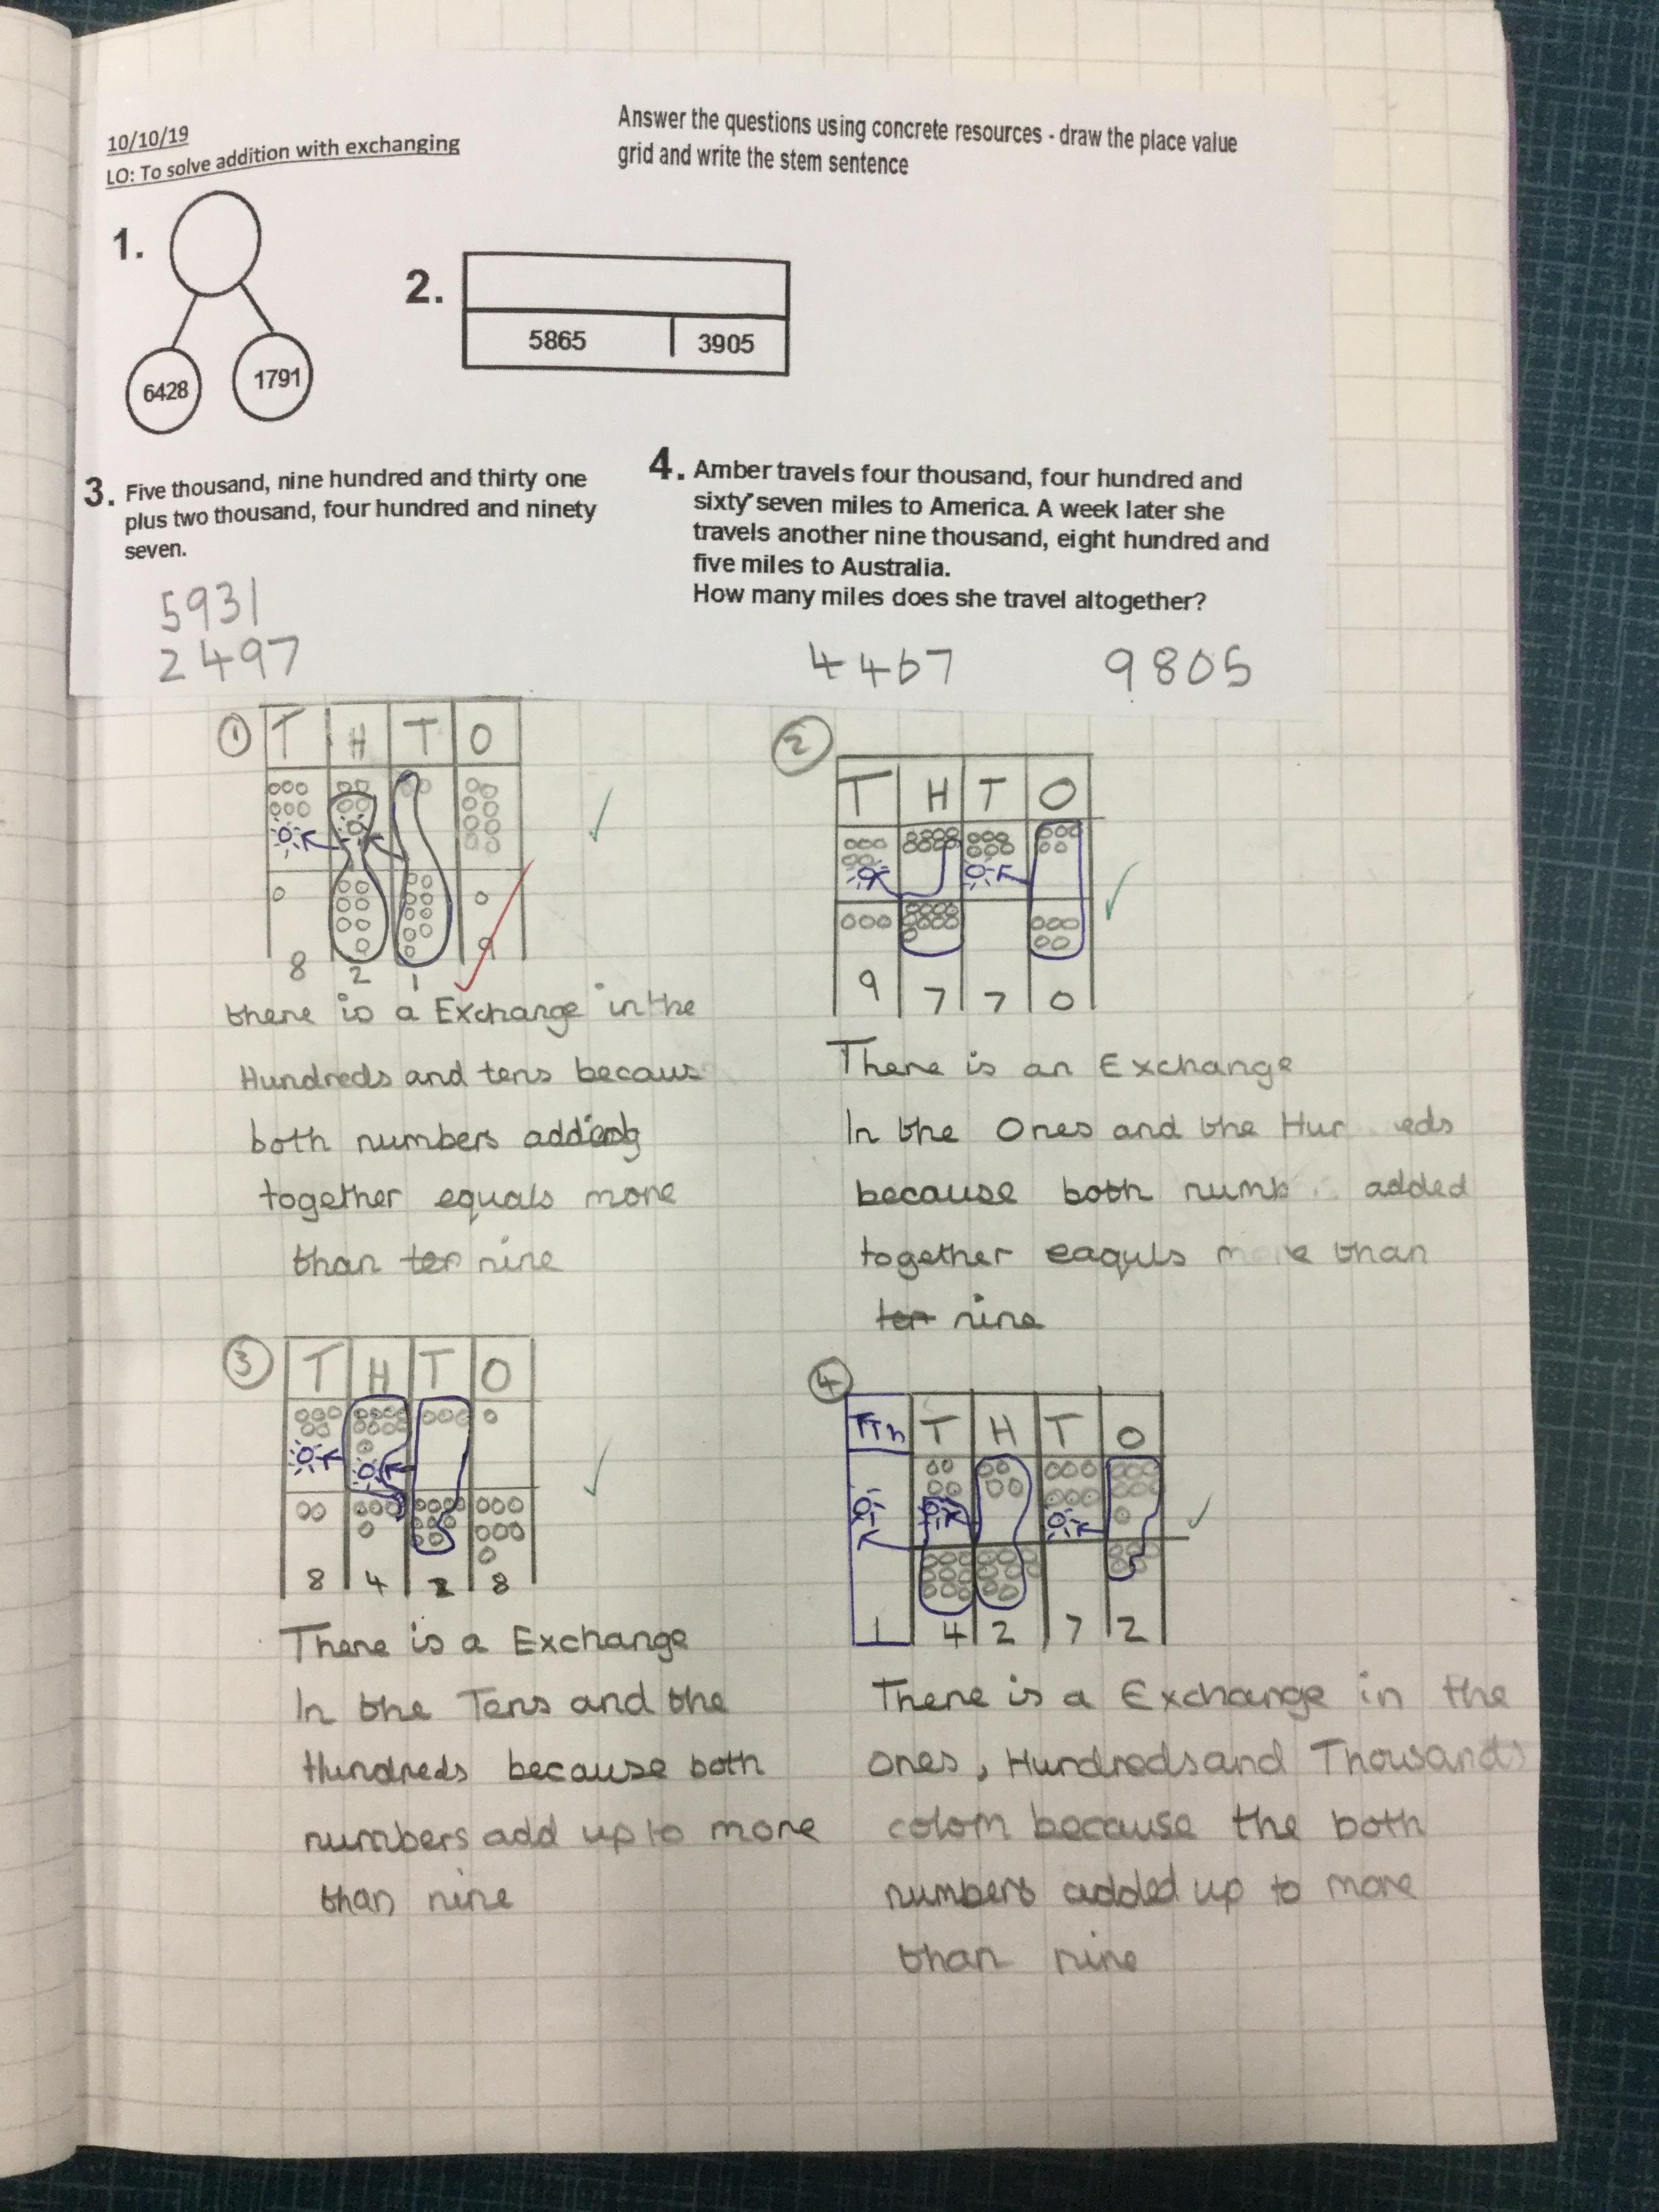 10/10/19
LO: To solve addition with exchanging
Answer the questions using concrete resources - draw the place value
grid and write the stem sentence
1.
6428 1791
2.
5865 3905
3. Five thousand, nine hundred and thirty one
plus two thousand, four hundred and ninety
seven.
5931
2497
4. Amber travels four thousand, four hundred and
sixty seven miles to America. A week later she
travels another nine thousand, eight hundred and
five miles to Australia.
How many miles does she travel altogether?
4467 9805
1 T H T O
8 2 1 9
there is a Exchange in the
Hundreds and tens becaus
both numbers adding
together equals more
than ten nine
2 T H T O
9 7 7 0
There is an Exchange
In the Ones and the Hur eds
because both numb added
together eaquls more than
ten nine
3 T H T O
8 4 2 8
There is a Exchange
In the Tens and the
Hundreds because both
numbers add up to more
than nine
4 TTh T H T O
1 4 2 7 2
There is a Exchange in the
ones, Hundreds and Thousands
colom because the both
numbers added up to more
than nine